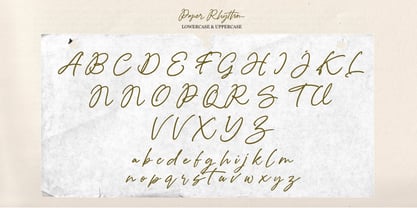 Paper Rhythm
LOWERCASE & UPPERCASE
A B C D E F G H I J K L
M N O P Q R S T U
V V X Y Z
a b c d e f g h i j k l m
n o p q r s t u v w x y z